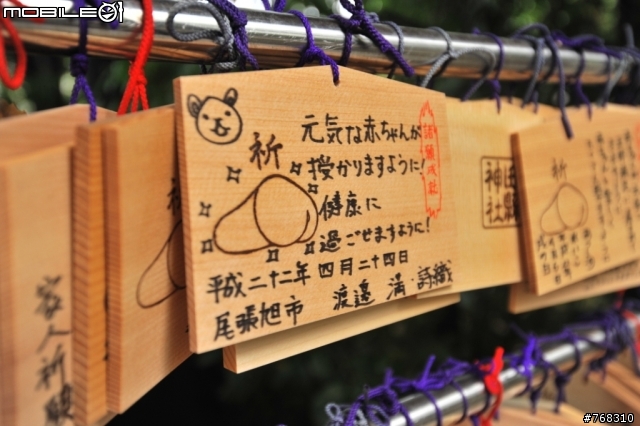 MOBILE01
元気な赤ちゃんが
祈
授かりますように!
健康に
過ごせますように!
平成二十二年 四月二十四日
尾張旭市 渡邉 満
諸願成就
田縣
神社
祈
家人祈願
#768310